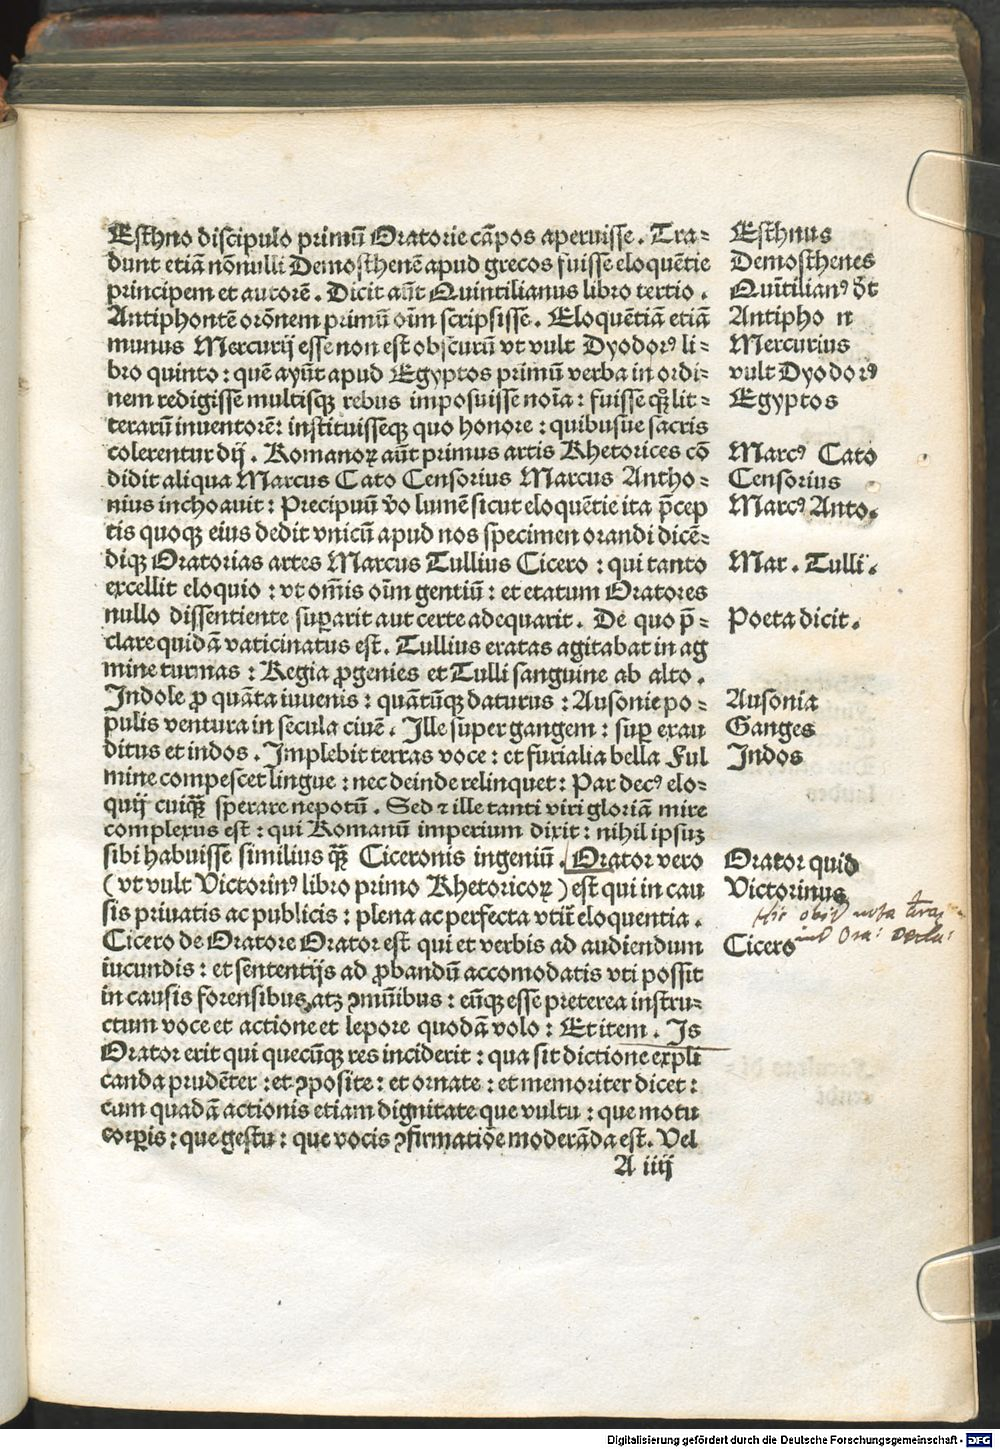 Esthno discipulo primū Oratorie cāpos aperuisse. Tra⸗
dunt etiā nōnulli Demosthenē apud grecos fuisse eloquētie
principem et autorē. Dicit aūt Quintilianus libro tertio.
Antiphontē orōnem primū oīm scripsisse. Eloquētiā etiā
munus Mercurij esse non est obscurū vt vult Dyodorꝰ li⸗
bro quinto: quē ayūt apud Egyptos primū verba in ordi⸗
nem redigisse multisqꝫ rebus imposuisse noīa: fuisse qꝫ lit⸗
terarū inuentorē: instituisseqꝫ quo honore: quibusue sacris
colerentur dij. Romanoꝝ aūt primus artis Rhetorices cō
didit aliqua Marcus Cato Censorius Marcus Antho⸗
nius inchoauit: Precipuū v̄o lumē sicut eloquētie ita p̄cep
tis quoqꝫ eius dedit vnicū apud nos specimen orandi dicē⸗
diqꝫ Oratorias artes Marcus Tullius Cicero: qui tanto
excellit eloquio: vt om̄is oīm gentiū: et etatum Oratores
nullo dissentiente suꝑarit aut certe adequarit. De quo p̄⸗
clare quidā vaticinatus est. Tullius eratas agitabat in ag
mine turmas: Regia ꝓgenies et Tulli sanguine ab alto.
Indole ꝓ quāta iuuenis: quātūqꝫ daturus: Ausonie po⸗
pulis ventura in secula ciuē. Ille super gangem: suꝑ exau
ditus et indos. Implebit terras voce: et furialia bella Ful
mine compescet lingue: nec deinde relinquet: Par decꝰ elo⸗
quij cuiqꝫ̄ sperare nepotū. Sed ⁊ ille tanti viri gloriā mire
complexus est: qui Romanū imperium dixit: nihil ipsuꝫ
sibi habuisse similius qꝫ̄ Ciceronis ingeniū. Orator vero
(vt vult Victorinꝰ libro primo Rhetoricoꝝ) est qui in cau
sis priuatis ac publicis: plena ac perfecta vtit̄ eloquentia.
Cicero de Oratore Orator est qui et verbis ad audiendum
iucundis: et sententijs ad ꝓbandū accomodatis vti possit
in causis forensibus atqꝫ ꝯmūibus: eūqꝫ esse preterea instru⸗
ctum voce et actione et lepore quodā volo: Et item. Is
Orator erit qui quecūqꝫ res inciderit: qua sit dictione expli
canda prudēter: et ꝯposite: et ornate: et memoriter dicet:
cum quadā actionis etiam dignitate que vultu: que motu
corꝑis: que gestu: que vocis ꝯfirmatiōe moderāda est. Vel
A iiij
Esthnus
Demosthenes
Quītilianꝰ d̄t
Antipho n
Mercurius
vult Dyodorꝰ
Egyptos
Marcꝰ Cato
Censorius
Marcꝰ Anto.
Mar. Tulli.
Poeta dicit.
Ausonia
Ganges
Indos
Orator quid
Victorinus
Cicero